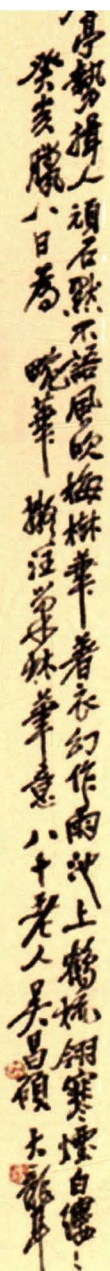 亭勢揖人頑石默不語風吹梅樹華著衣幻作雨池上鶴梳翎寒煙白縷〻
癸亥臘八日為畹華擬汪巢林筆意八十老人吳昌碩大聾